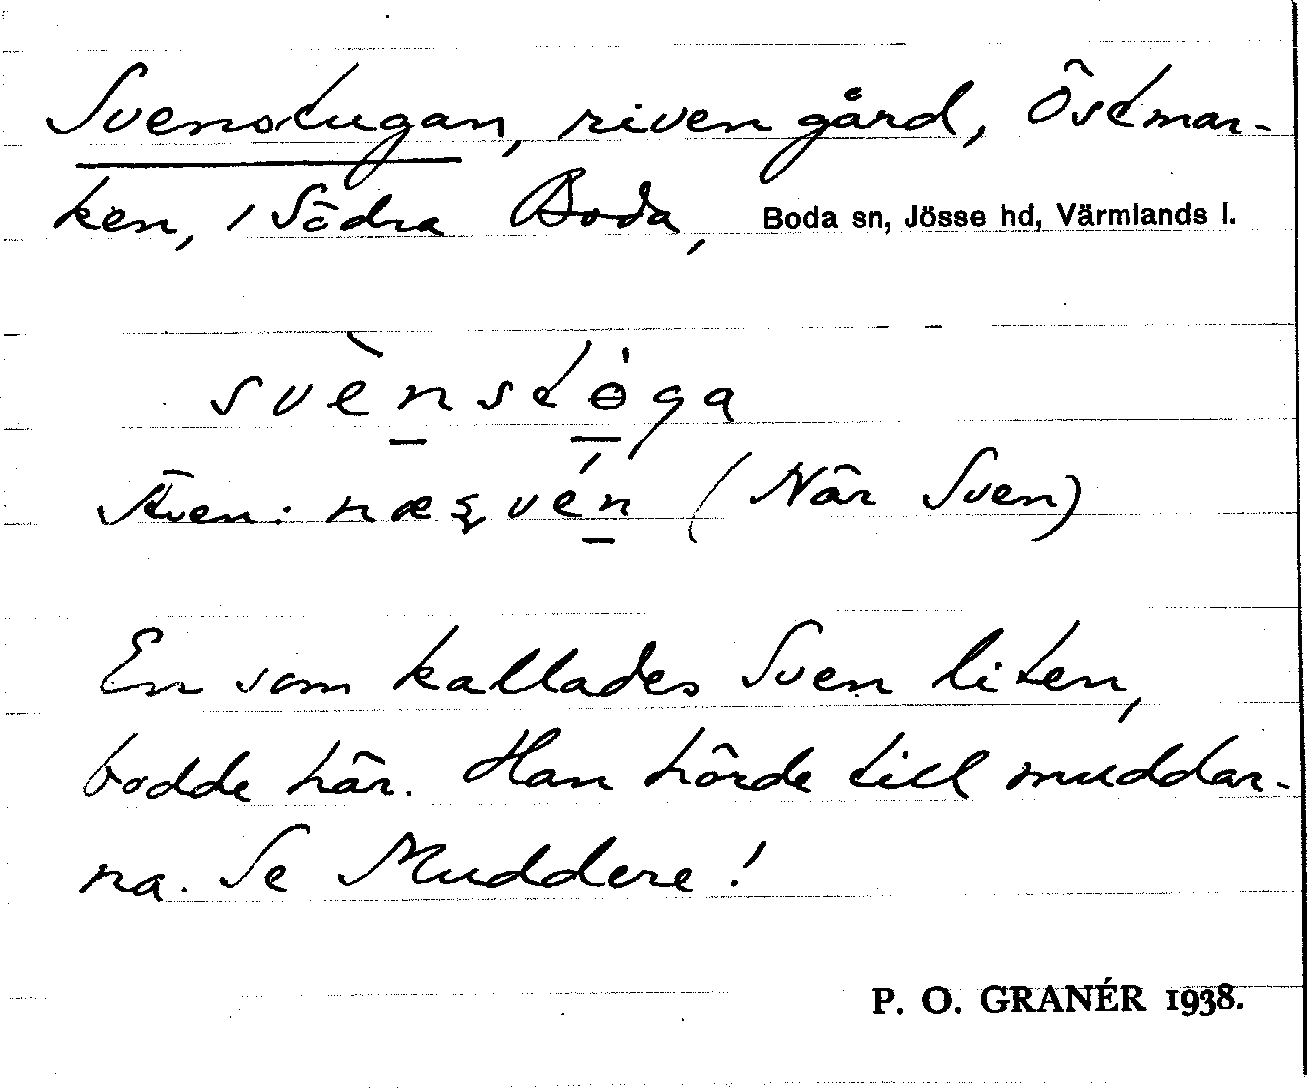 Svenstugan, riven gård, Östmar-
ken, 1 Södra Boda, Boda sn, Jösse hd, Värmlands l.
svèn̲stɵ̲̀ga
Även: næʂvén̲ (När Sven)
En som kallades Sven liten,
bodde här. Han hörde till muddar-
na. Se Muddere!
P. O. GRANÉR 1938.